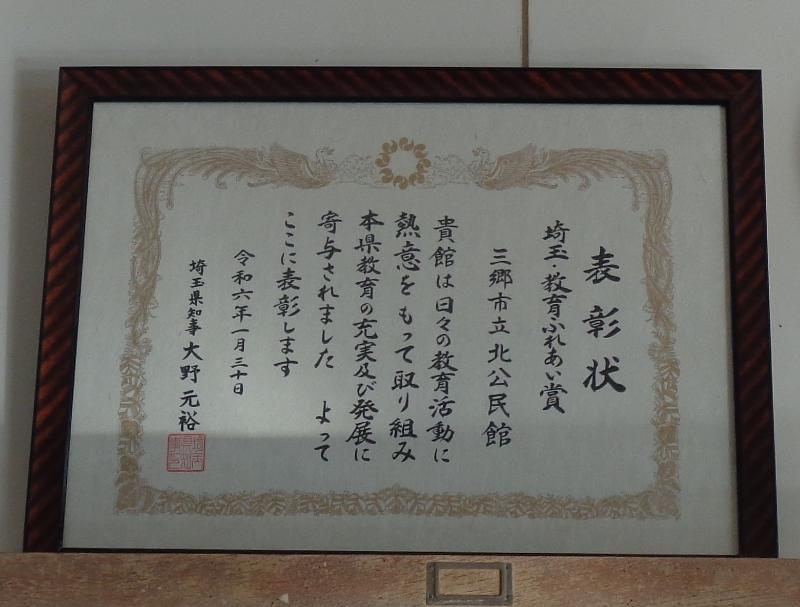 表彰状
埼玉・教育ふれあい賞
三郷市立北公民館
貴館は日々の教育活動に
熱意をもって取り組み
本県教育の充実及び発展に
寄与されました　よって
ここに表彰します
令和六年一月三十日
埼玉県知事　大野元裕